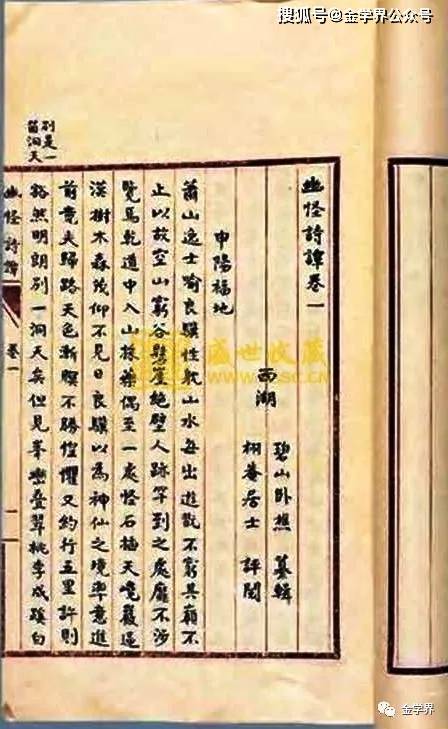 搜狐号@金学界公众号
幽怪詩譚卷一
西湖
碧山臥樵 纂輯
栩菴居士 評閱
申陽福地
蕭山逸士喻良驥性耽山水每出遊觀不窮其巔不
止以故空山窮谷懸崖絕壁人跡罕到之處靡不涉
覽焉乾道中入山採藥偶至一處怪石插天巉巖逼
漢樹木森茂仰不見日良驥以為神仙之境率意進
前竟失歸路天色漸暝不勝惶懼又約行五里許則
豁然明朗別一洞天矣但見峯巒疊翠桃李成蹊白
別是一
番洞天
幽怪詩譚 卷一
盛世收藏
金学界